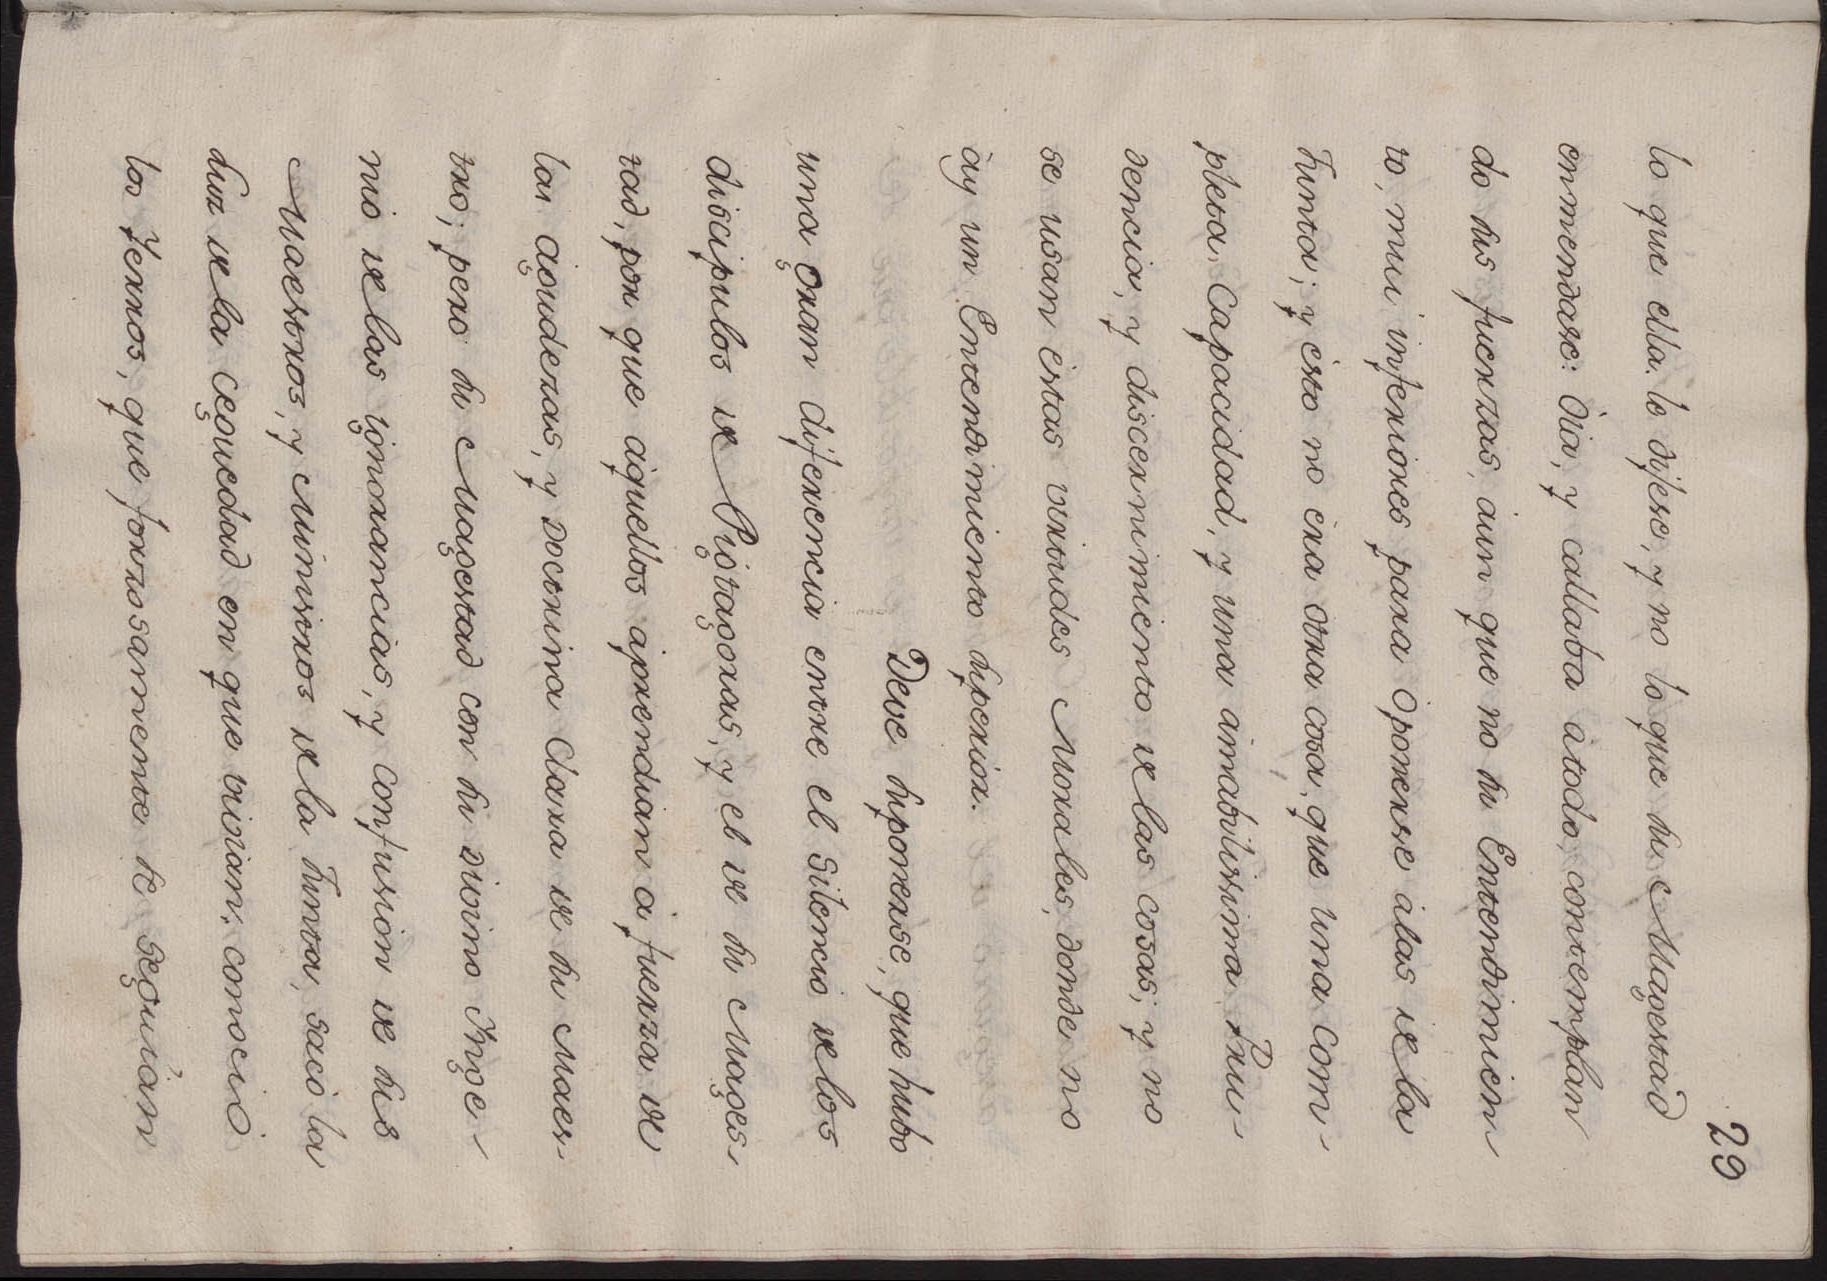 29
lo que ella le dijese, y no lo que su Magestad
enmendase: Oìa, y callaba atodo, contemplan
do sus fuerzas, aun que no su Entendimien
to, mui inferiores para oponerse àlas de la
Junta; y èsto no era otra cosa, que una Com-
pleta Capacidad, y una amabilissima Pru-
dencia, y discernimiento de las cosas; y no
se usan estas virtudes Morales, donde no
ày un Entendimiento superior.
Deve suponerse, que hubo
una gran diferencia entre el silencio de los
discipulos de Pitagoras, y el de su Mages-
tad, por que aquellos aprendian à fuerza de
las agudezas, y doctrina clara de su Maes-
tro; pero su Magestad con su divino Inge-
nio de las ignorancias, y confusion de sus
Maestros, y Ministros de la Junta, sacò la
luz de la ceguedad en que vivian; conociò
los Yerros, que forzosamente se seguiàn